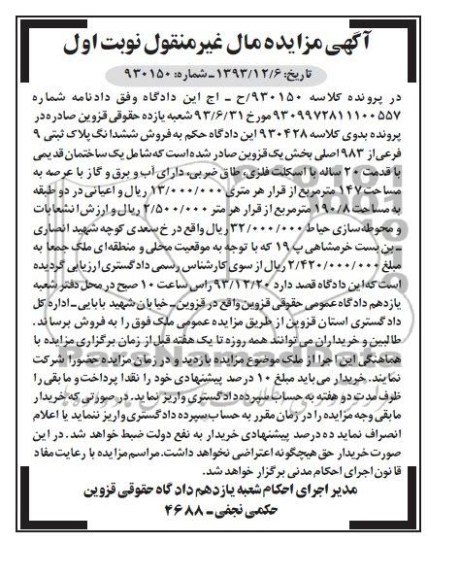 آگهی مزایده مال غیرمنقول نوبت اول
تاریخ: ۱۳۹۳/۱۲/۶ ـ شماره: ۹۳۰۱۵۰
در پرونده کلاسه ۹۳۰۱۵۰/ح ـ اج این دادگاه وفق دادنامه شماره
۹۳۰۹۹۷۲۸۱۱۱۰۰۵۵۷ مورخ ۹۳/۶/۳۱ شعبه یازده حقوقی قزوین صادره در
پرونده بدوی کلاسه ۹۳۰۴۲۸ این دادگاه حکم به فروش ششدانگ پلاک ثبتی ۹
فرعی از ۹۸۳ اصلی بخش یک قزوین صادر شده است که شامل یک ساختمان قدیمی
با قدمت ۲۰ ساله با اسکلت فلزی، طاق ضربی، دارای آب و برق و گاز با عرصه به
مساحت ۱۴۷ مترمربع از قرار هر متری ۱۳/۰۰۰/۰۰۰ ریال و اعیانی در دو طبقه
به مساحت ۱۹۰/۸ مترمربع از قرار هر متر ۲/۵۰۰/۰۰۰ ریال و ارزش انشعابات
و محوطه‌سازی حیاط ۳۲/۰۰۰/۰۰۰ ریال واقع در خ سعدی کوچه شهید انصاری
ـ بن بست خرمشاهی پ ۱۹ که با توجه به موقعیت محلی و منطقه‌ای ملک جمعا به
مبلغ ۲/۴۲۰/۰۰۰/۰۰۰ ریال از سوی کارشناس رسمی دادگستری ارزیابی گردیده
است که این دادگاه قصد دارد ۹۳/۱۲/۲۰ راس ساعت ۱۰ صبح در محل دفتر شعبه
یازدهم دادگاه عمومی حقوقی قزوین واقع در قزوین ـ خیابان شهید بابایی ـ اداره کل
دادگستری استان قزوین از طریق مزایده عمومی ملک فوق را به فروش برساند.
طالبین و خریداران می‌توانند همه روزه تا یک هفته قبل از زمان برگزاری مزایده با
هماهنگی این اجرا از ملک موضوع مزایده بازدید و در زمان مزایده حضورا شرکت
نمایند. خریدار می‌باید مبلغ ۱۰ درصد پیشنهادی خود را نقدا پرداخت و مابقی را
ظرف مدت دو هفته به حساب سپرده دادگستری واریز نماید. در صورتی که خریدار
مابقی وجه مزایده را در زمان مقرر به حساب سپرده دادگستری واریز ننماید یا اعلام
انصراف نماید ده درصد پیشنهادی خریدار به نفع دولت ضبط خواهد شد. در این
صورت خریدار حق هیچگونه اعتراضی نخواهد داشت. مراسم مزایده با رعایت مفاد
قانون اجرای احکام مدنی برگزار خواهد شد.
مدیر اجرای احکام شعبه یازدهم دادگاه حقوقی قزوین
حکمی نجفی ـ ۴۶۸۸